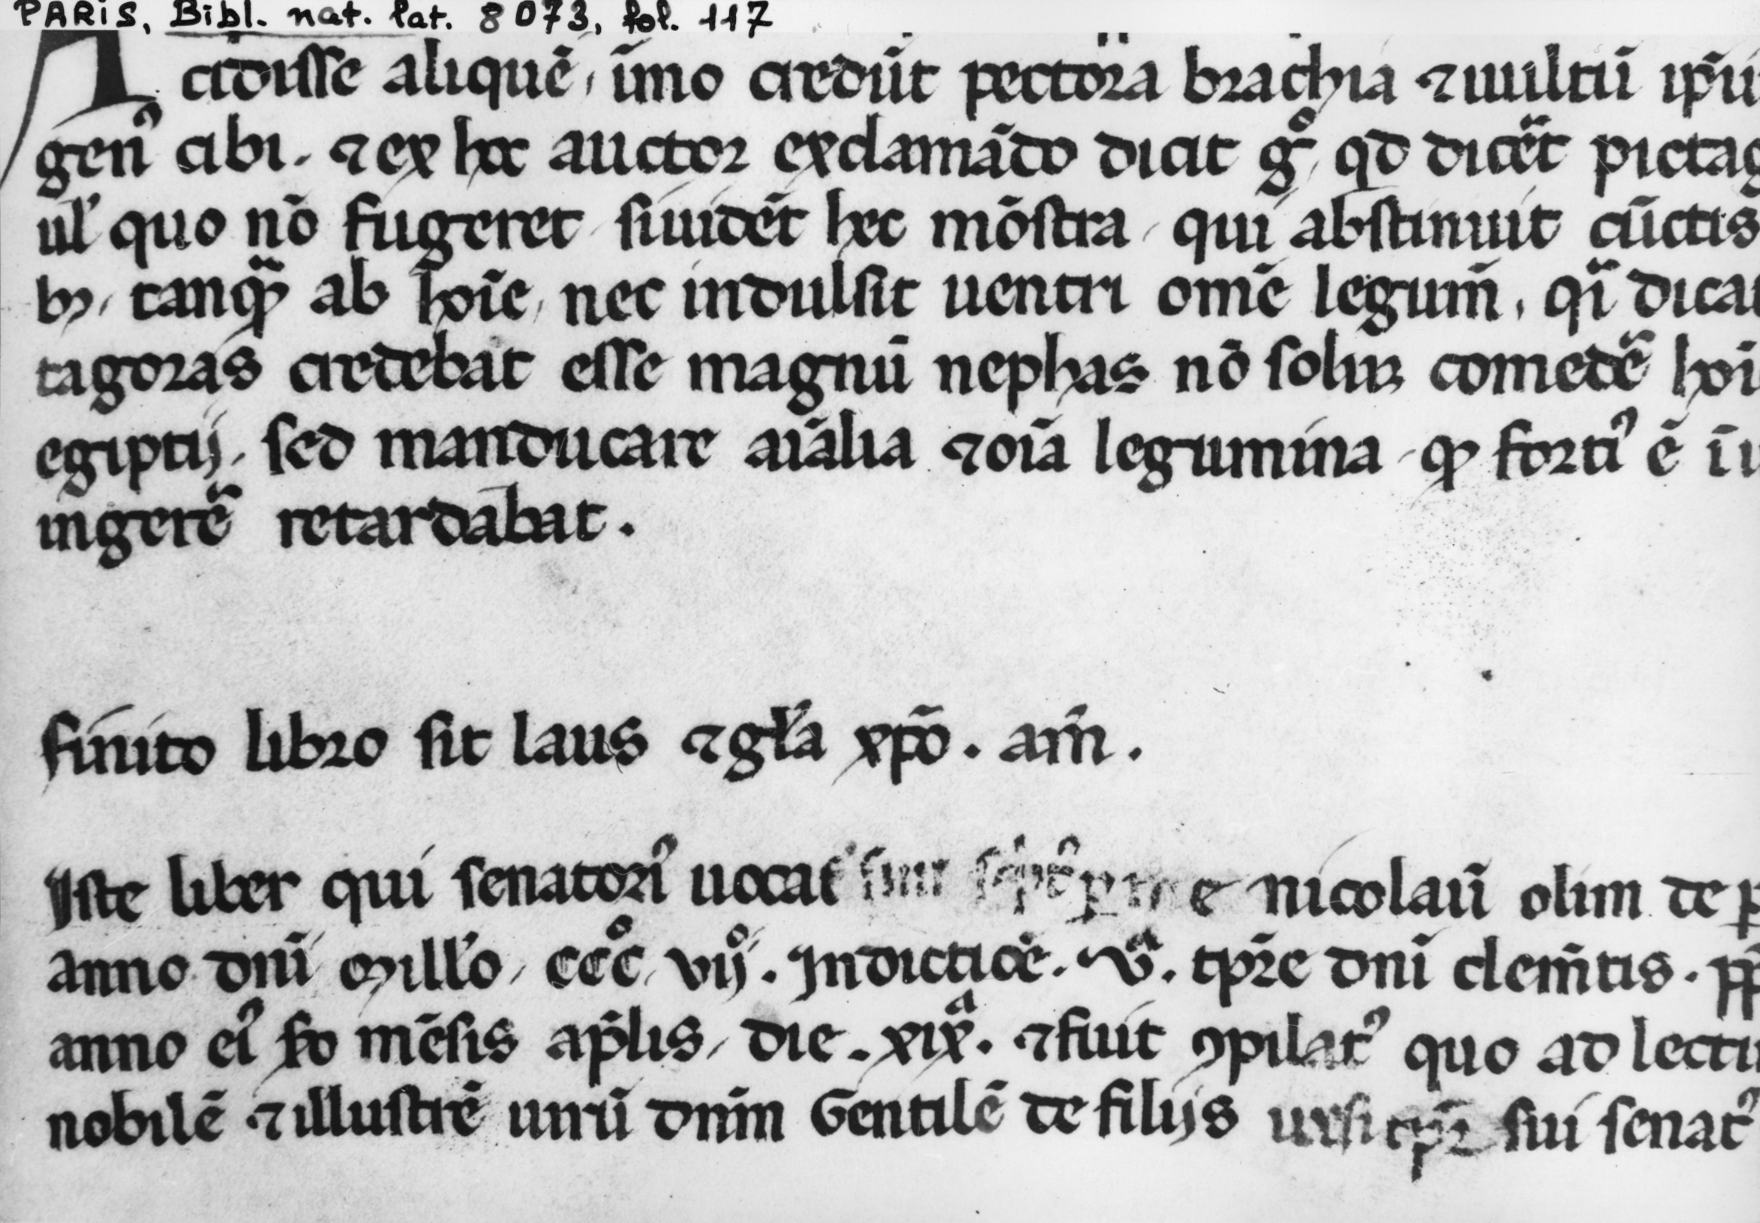 PARIS, Bibl. nat. lat. 8073, fol. 117
cidisse aliquē, īmo credūt pectora brachia ⁊ uultū ip̄u
genꝰ cibi. ⁊ ex hoc auctor exclamādo dicit gͦ, qd dicēt pictag
ul' quo nō fugeret si uidēt hec mōstra, qui abstinuit cūctis
bꝫ, tanqᷓꝫ ab hoīe, nec indulsit uentri omē legum̄, qi̅ dicat
tagoras credebat esse magnū nephas nō soluꝫ comedē hoī
egiptij, sed manducare aīalia ⁊ oīa legumina ꝙ fortiꝰ ē
ingerē retardabat.
finito libro sit laus ⁊ gl̄a xp̄o. am̄.
Iste liber qui senatoriꝰ uocat' fuit sc̄ptꝰ nicolaū olim de p
anno dn̄i mill'o, cccͦ vijͦ. Indictiōe. vᵃ. tp̄re dn̄i clem̄tis. pp
anno eiꝰ mēsis ap̄lis, die. xixᵃ. ⁊ fuit ꝯpilatꝰ quo ad lectu
nobilē ⁊ illustrē uirū dn̄m Gentilē de filijs ursi tp̄r sui senatꝰ